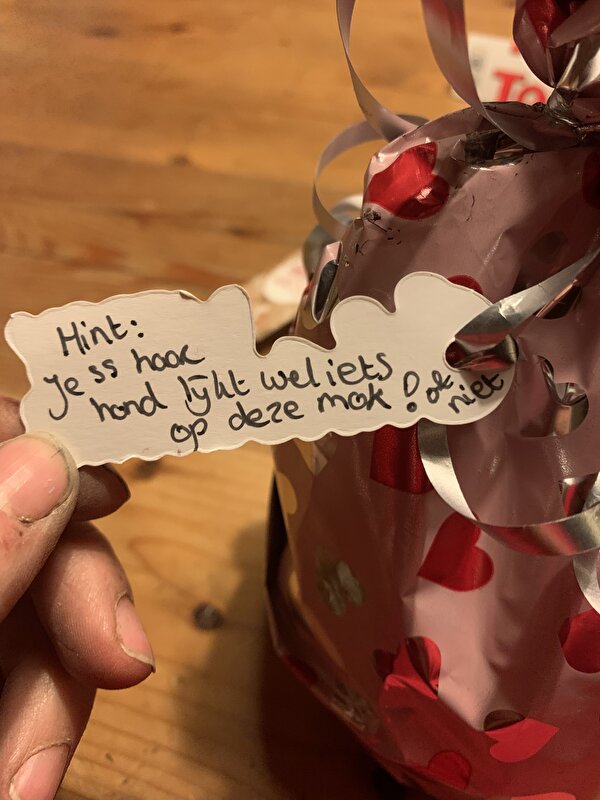 Hint:
Jess haar
hond lijkt wel iets
op deze mok! of
niet
To